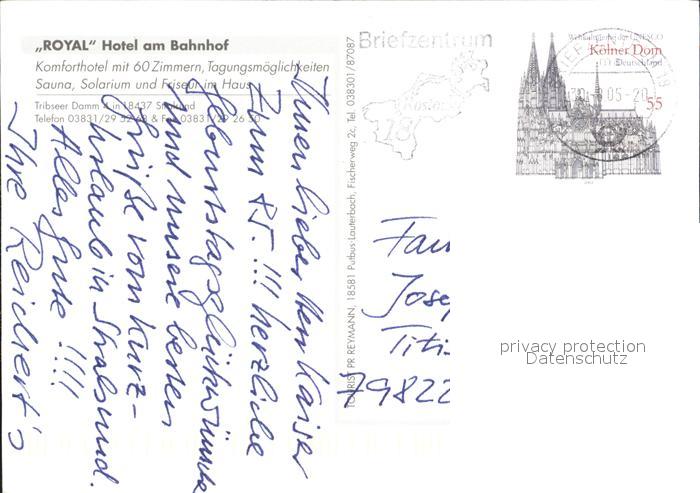 „ROYAL“ Hotel am Bahnhof
Komforthotel mit 60 Zimmern, Tagungsmöglichkeiten
Sauna, Solarium und Friseur im Haus
Tribseer Damm 4 in 18437 Stralsund
Telefon 03831/29 52 68 & Fax 03831/29 26 50
Ihnen lieber Herr Kaiser
Zum 75. !!! herzliche
Geburtstagsglückwünsche
und unsere besten
Grüße vom Kurz-
Urlaub in Stralsund.
Alles Gute !!!!
Ihre Reichert's
TOURIST PR REYMANN, 18581 Putbus-Lauterbach, Fischerweg 2c, Tel. 038301/87087
Briefzentrum
18
Weltkulturerbe der UNESCO
Kölner Dom
Deutschland
55
05-20
18
Fam
Jose
Titi
79822
privacy protection
Datenschutz